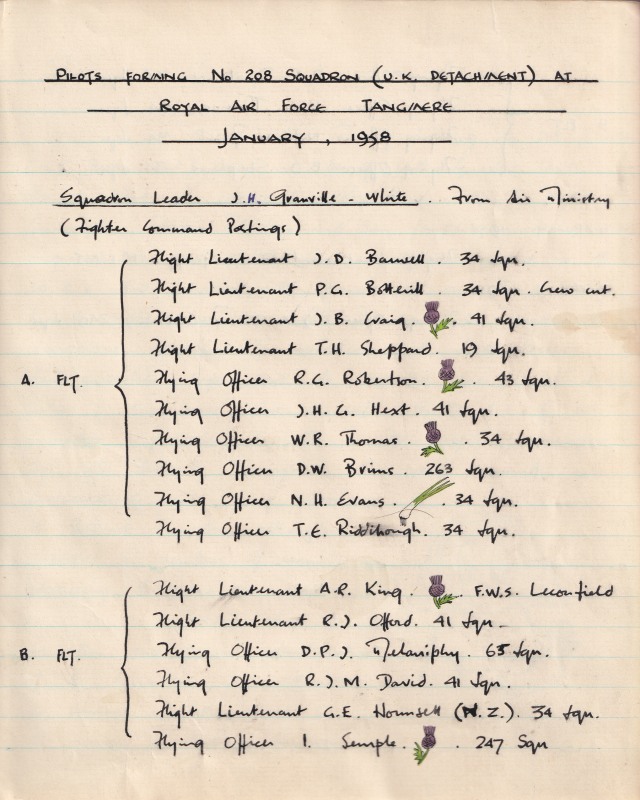 PILOTS FORMING No 208 SQUADRON (U.K. DETACHMENT) AT
ROYAL AIR FORCE TANGMERE
JANUARY, 1958
Squadron Leader J.H. Granville-White. From Air Ministry
(Fighter Command Postings)
Flight Lieutenant J.D. Barwell. 34 Sqn.
Flight Lieutenant P.G. Botterill. 34 Sqn. Crew cut.
Flight Lieutenant J.B. Craig. 41 Sqn.
Flight Lieutenant T.H. Sheppard. 19 Sqn.
A. FLT. Flying Officer R.G. Robertson. 43 Sqn.
Flying Officer J.H.G. Hext. 41 Sqn.
Flying Officer W.R. Thomas. 34 Sqn.
Flying Officer D.W. Brims. 263 Sqn.
Flying Officer N.H. Evans. 34 Sqn.
Flying Officer T.E. Riddihough. 34 Sqn.
Flight Lieutenant A.R. King. F.W.S. Leconfield
Flight Lieutenant R.J. Offord. 41 Sqn.
B. FLT. Flying Officer D.P.J. Melaniphy. 65 Sqn.
Flying Officer R.J.M. David. 41 Sqn.
Flight Lieutenant G.E. Hounsell (N.Z.). 34 Sqn.
Flying Officer I. Semple. 247 Sqn